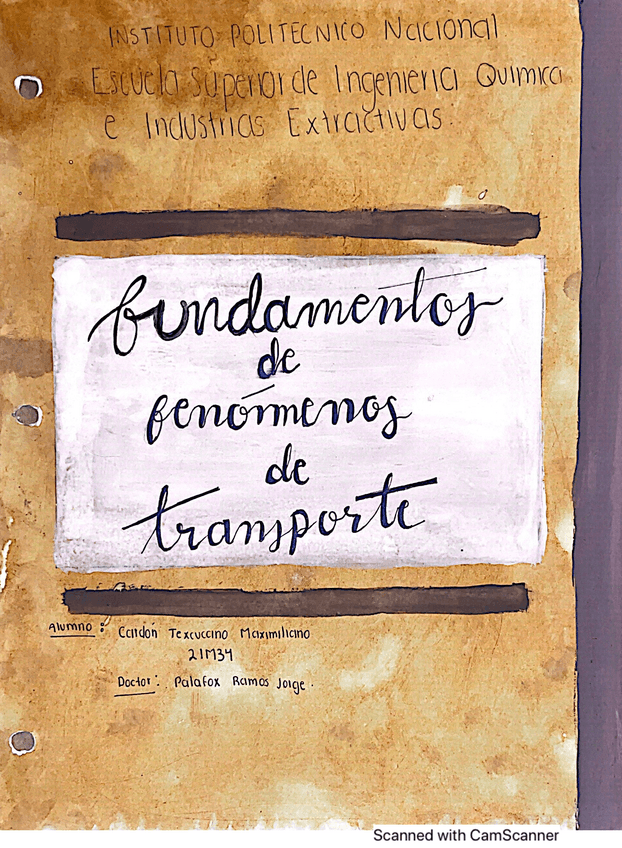 INSTITUTO POLITECNICO Nacional.
Escuela Superior de Ingenieria Quimica
e Industrias Extractivas.
fundamentos
de
fenómenos
de
transporte
Alumno: Cardón Texcuccino Maximiliano
21M34
Doctor: Palafox Ramos Jorge.
Scanned with CamScanner